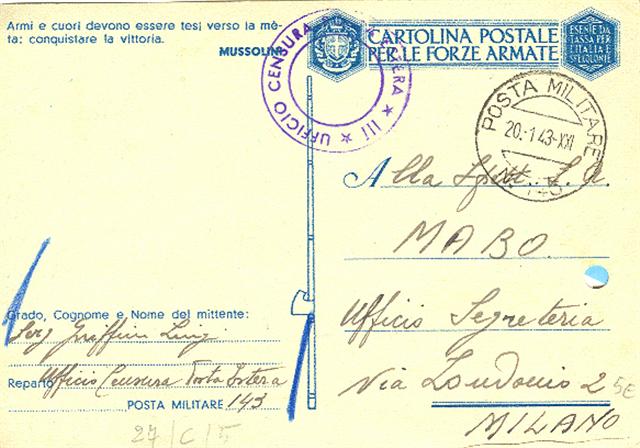 Armi e cuori devono essere tesi verso la mè-
ta: conquistare la vittoria.
MUSSOLINI
UFFICIO CENSURA ★ III ★
CARTOLINA POSTALE
PER LE FORZE ARMATE
ESENTE DA
TASSA PER
L'ITALIA E
SUE COLONIE
POSTA MILITARE
20.-1.43-XXI
N. 143
Alla Spett. S.A.
MABO
Ufficio Segreteria
Via Londonio 2
MILANO
Grado, Cognome e Nome del mittente:
Serg Griffini Luigi
Reparto Ufficio Censura Posta Estera
POSTA MILITARE 143
27/C/5